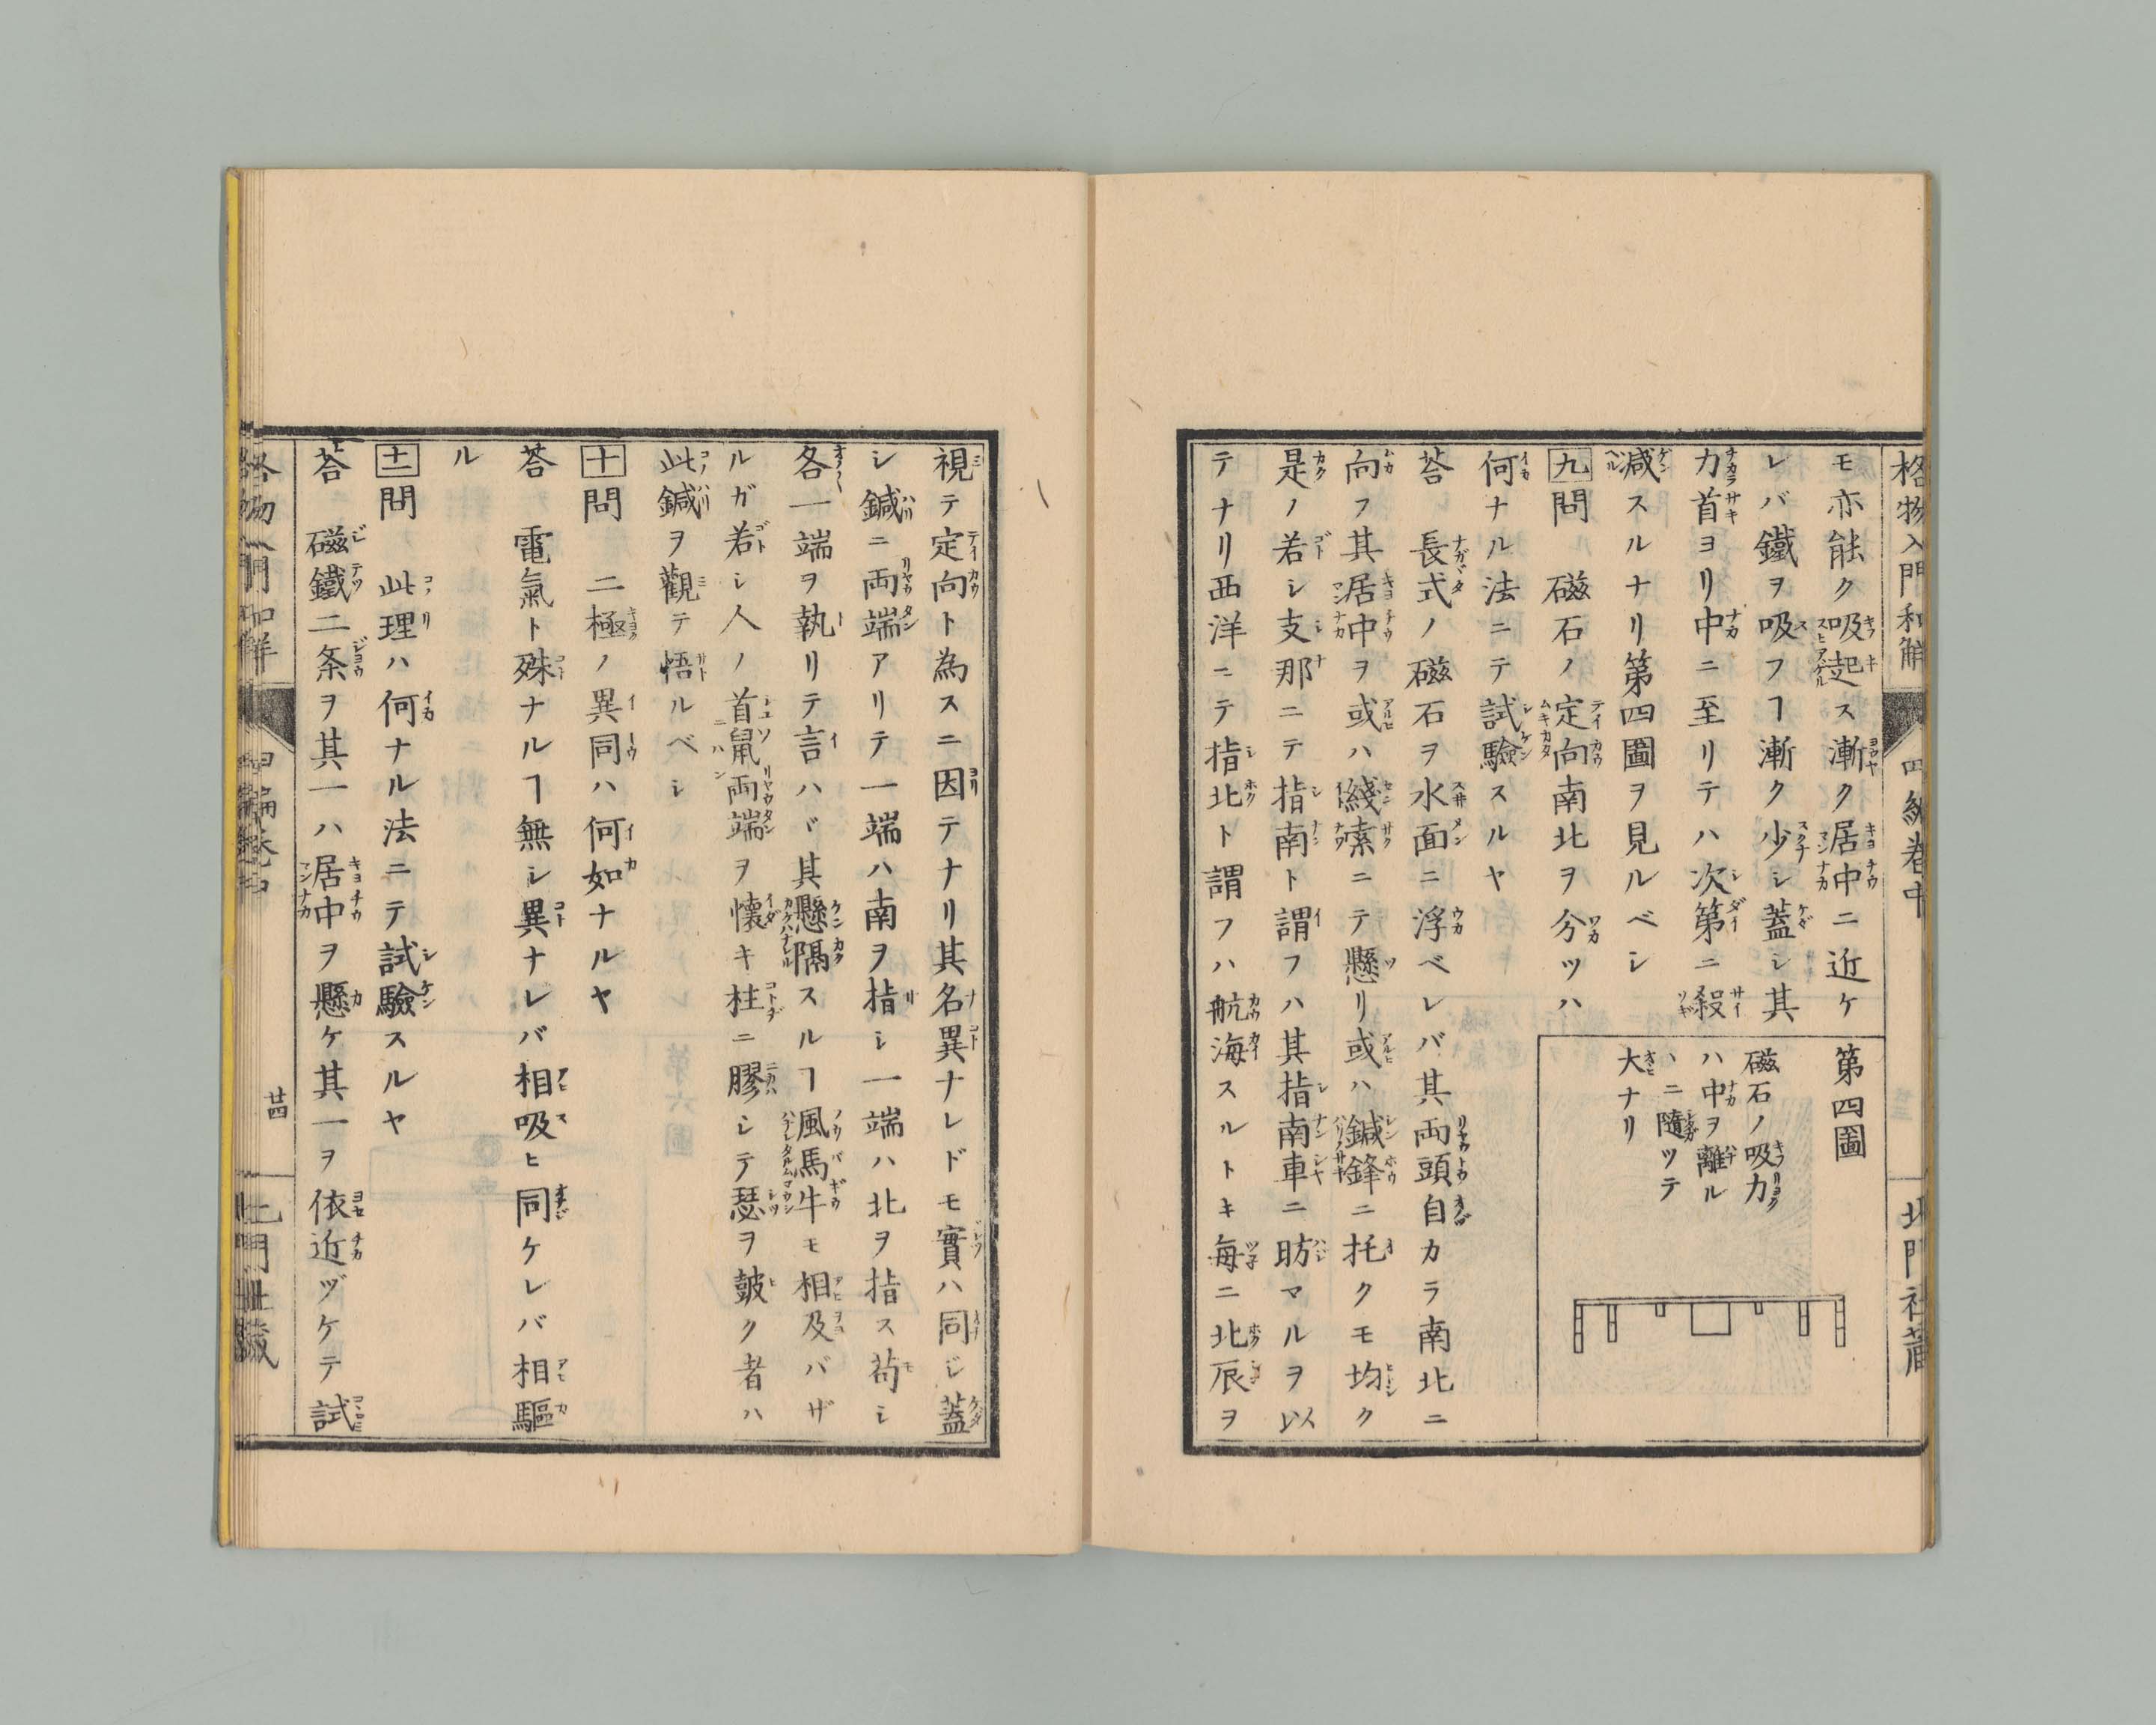 格物入門和解 四編卷中 北門社蔵
モ亦能ク吸起ス漸ク居中ニ近ケ
レバ鐵ヲ吸フヿ漸ク少シ蓋シ其
力首ヨリ中ニ至リテハ次第ニ殺
減スルナリ第四圖ヲ見ルベシ
第四圖
磁石ノ吸力
ハ中ヲ離ル
ハニ隨ツテ
大ナリ
九問 磁石ノ定向南北ヲ分ツハ
何ナル法ニテ試驗スルヤ
荅 長式ノ磁石ヲ水面ニ浮ベレバ其両頭自カラ南北ニ
向フ其居中ヲ或ハ綫嗉ニテ懸リ或ハ鍼鋒ニ托クモ均ク
是ノ若シ支那ニテ指南ト謂フハ其指南車ニ昉マルヲ以
テナリ西洋ニテ指北ト謂フハ航海スルトキ每ニ北辰ヲ
視テ定向ト為スニ因テナリ其名異ナレドモ實ハ同ジ蓋
シ鍼ニ両端アリテ一端ハ南ヲ指シ一端ハ北ヲ指ス苟シ
各一端ヲ執リテ言ハヾ其懸隔スルヿ風馬牛モ相及バザ
ルガ若シ人ノ首鼠両端ヲ懷キ柱ニ膠シテ瑟ヲ皷ク者ハ
此鍼ヲ觀テ悟ルベシ
十問 二極ノ異同ハ何如ナルヤ
荅 電氣ト殊ナルヿ無シ異ナレバ相吸ヒ同ケレバ相驅
ル
十一問 此理ハ何ナル法ニテ試驗スルヤ
荅 磁鐵二条ヲ其一ハ居中ヲ懸ケ其一ヲ依近ヅケテ試
格物入門和解 四編卷中 廿四 北門社蔵